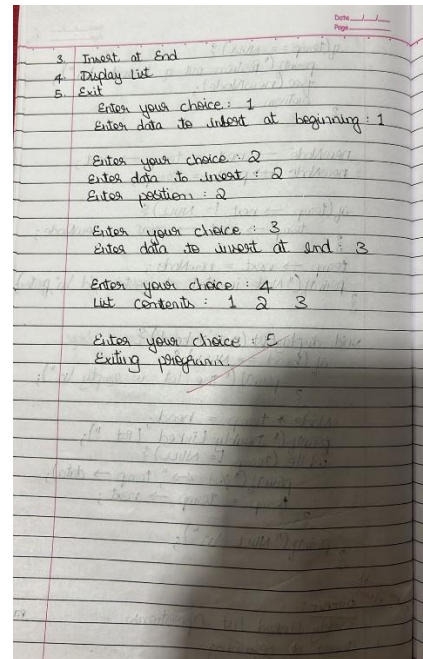 Date __/__/__
Page ____
3. Insert at End
4. Display List
5. Exit
Enter your choice : 1
Enter data to insert at beginning : 1
Enter your choice : 2
Enter data to insert : 2
Enter position : 2
Enter your choice : 3
Enter data to insert at end : 3
Enter your choice : 4
List contents : 1 2 3
Enter your choice : 5
Exiting program.